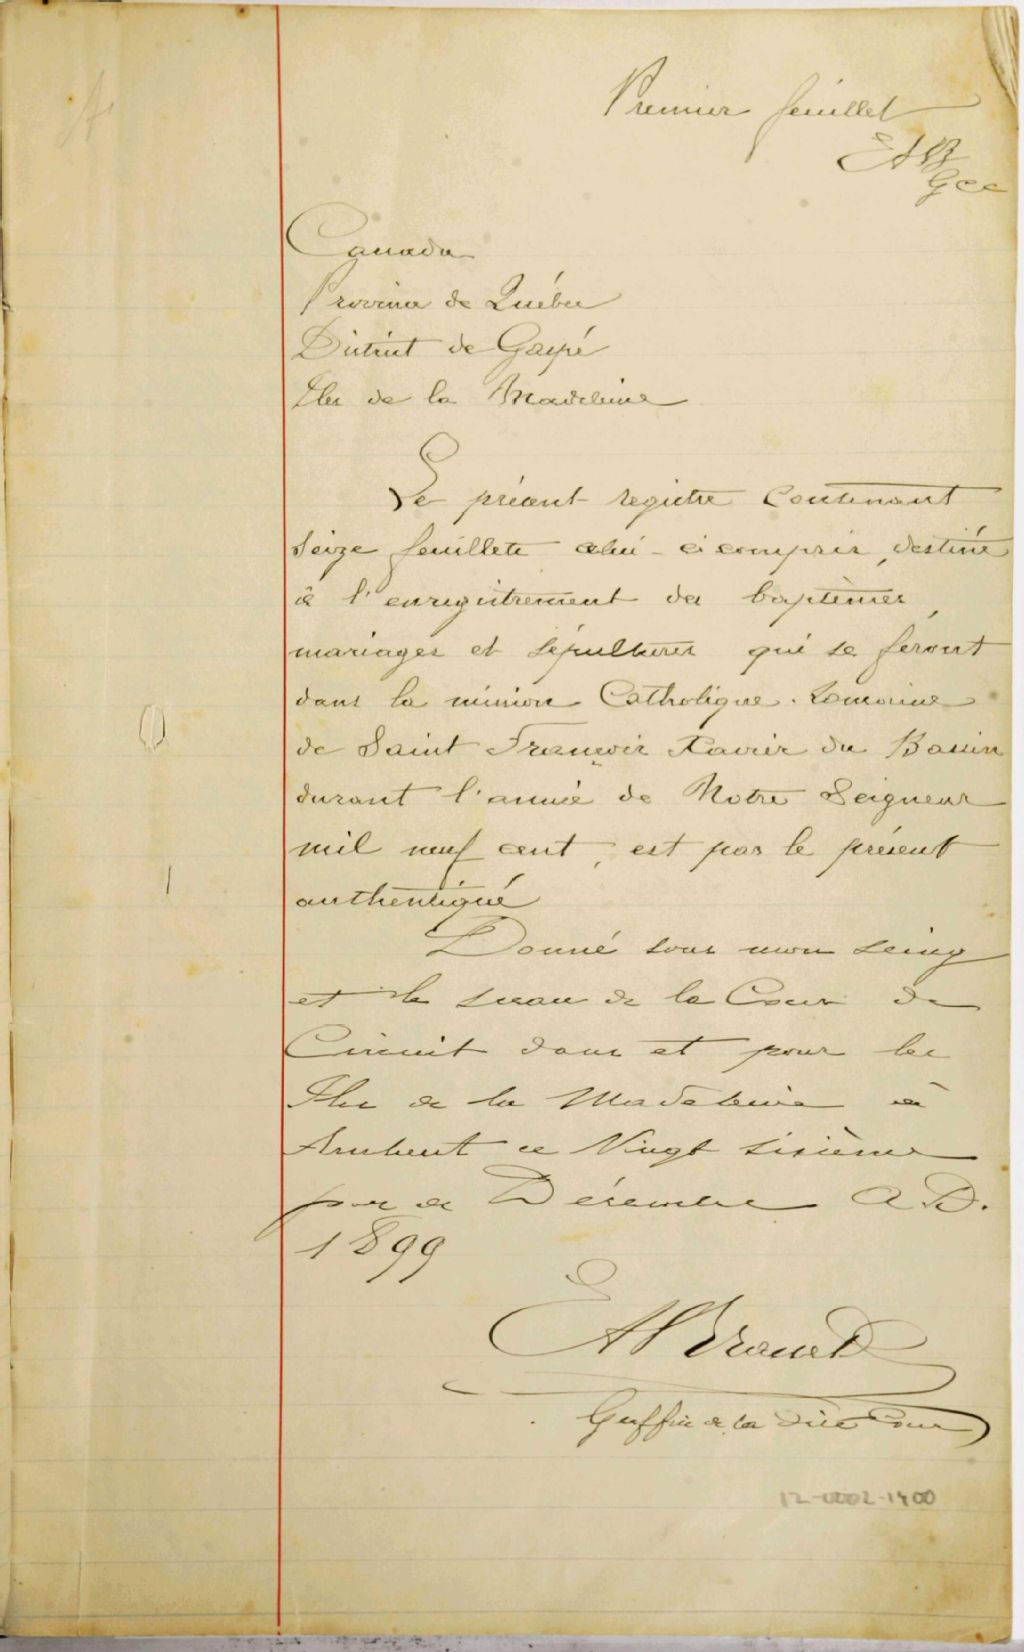 Premier feuillet
EAB
Gcc
Canada
Province de Québec
District de Gaspé
Iles de la Madeleine
Le présent registre contenant
seize feuillets celui-ci compris, destiné
à l'enregistrement des baptêmes,
mariages et sépultures qui se feront
dans la mission Catholique Romaine
de Saint François Xavier du Bassin
durant l'année de Notre Seigneur
mil neuf cent, est par le présent
authentiqué
Donné sous mon seing
et le sceau de la Cour de
Circuit dans et pour les
Iles de la Madeleine à
Amherst ce Vingt sixième
jour de Décembre A.D.
1899
EA Brasset
Greffier de la dite Cour
12-0002-1900